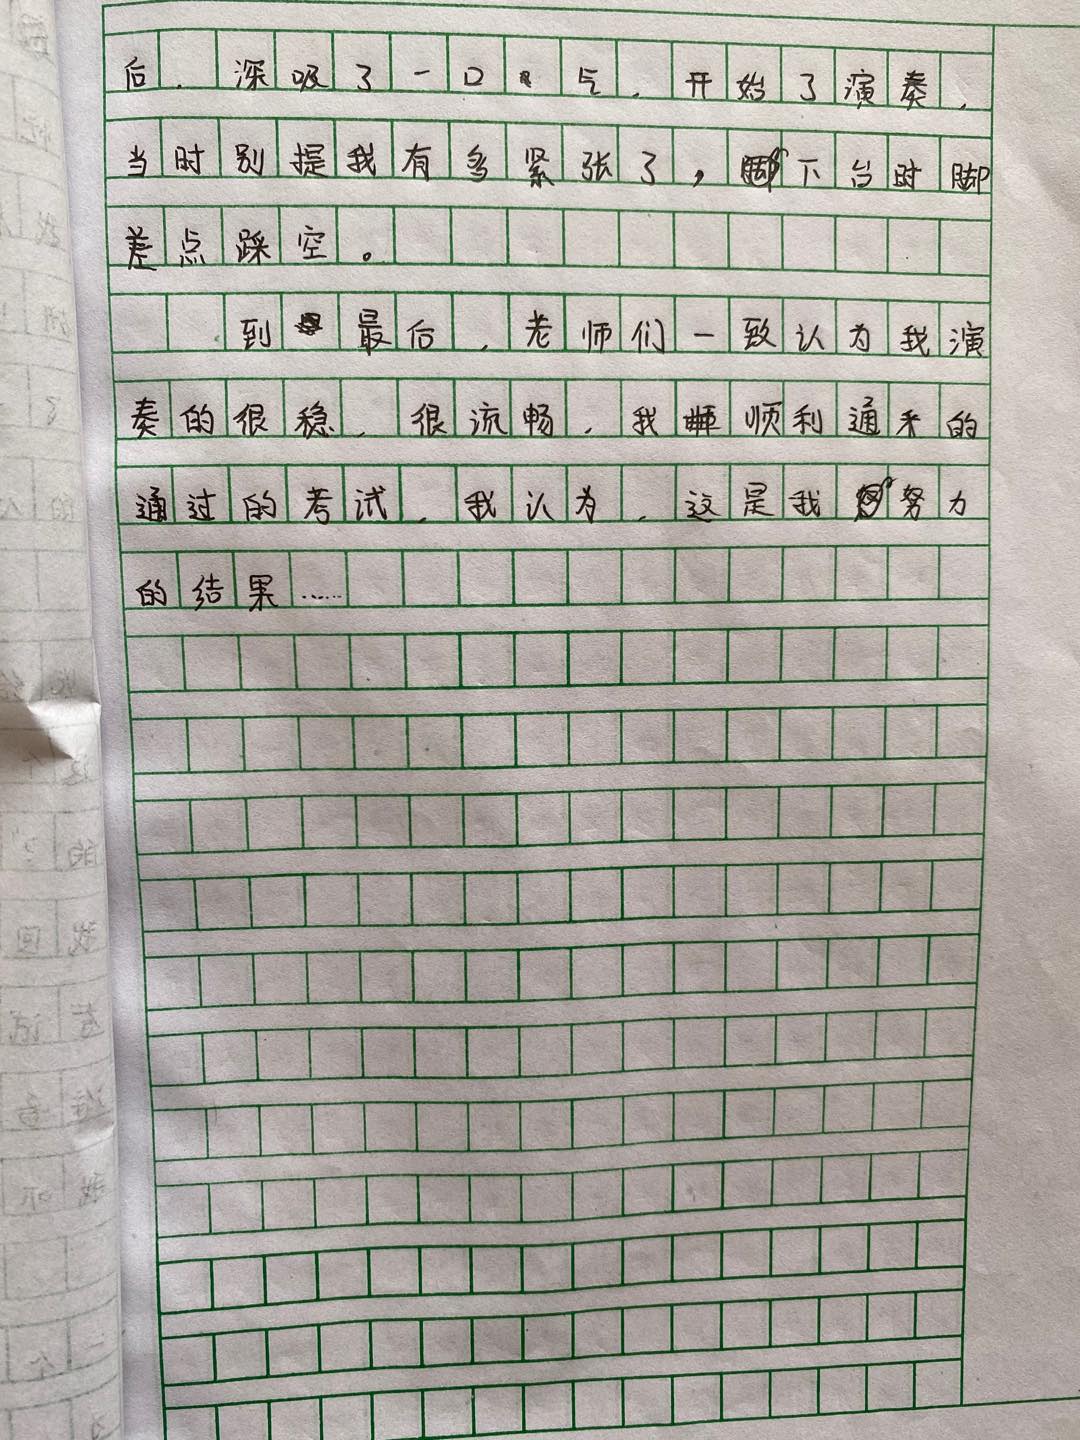 后，深吸了一口气，开始了演奏，
当时别提我有多紧张了，下台时脚
差点踩空。
到最后，老师们一致认为我演
奏的很稳，很流畅，我顺利通来的
通过的考试，我认为，这是我努力
的结果……